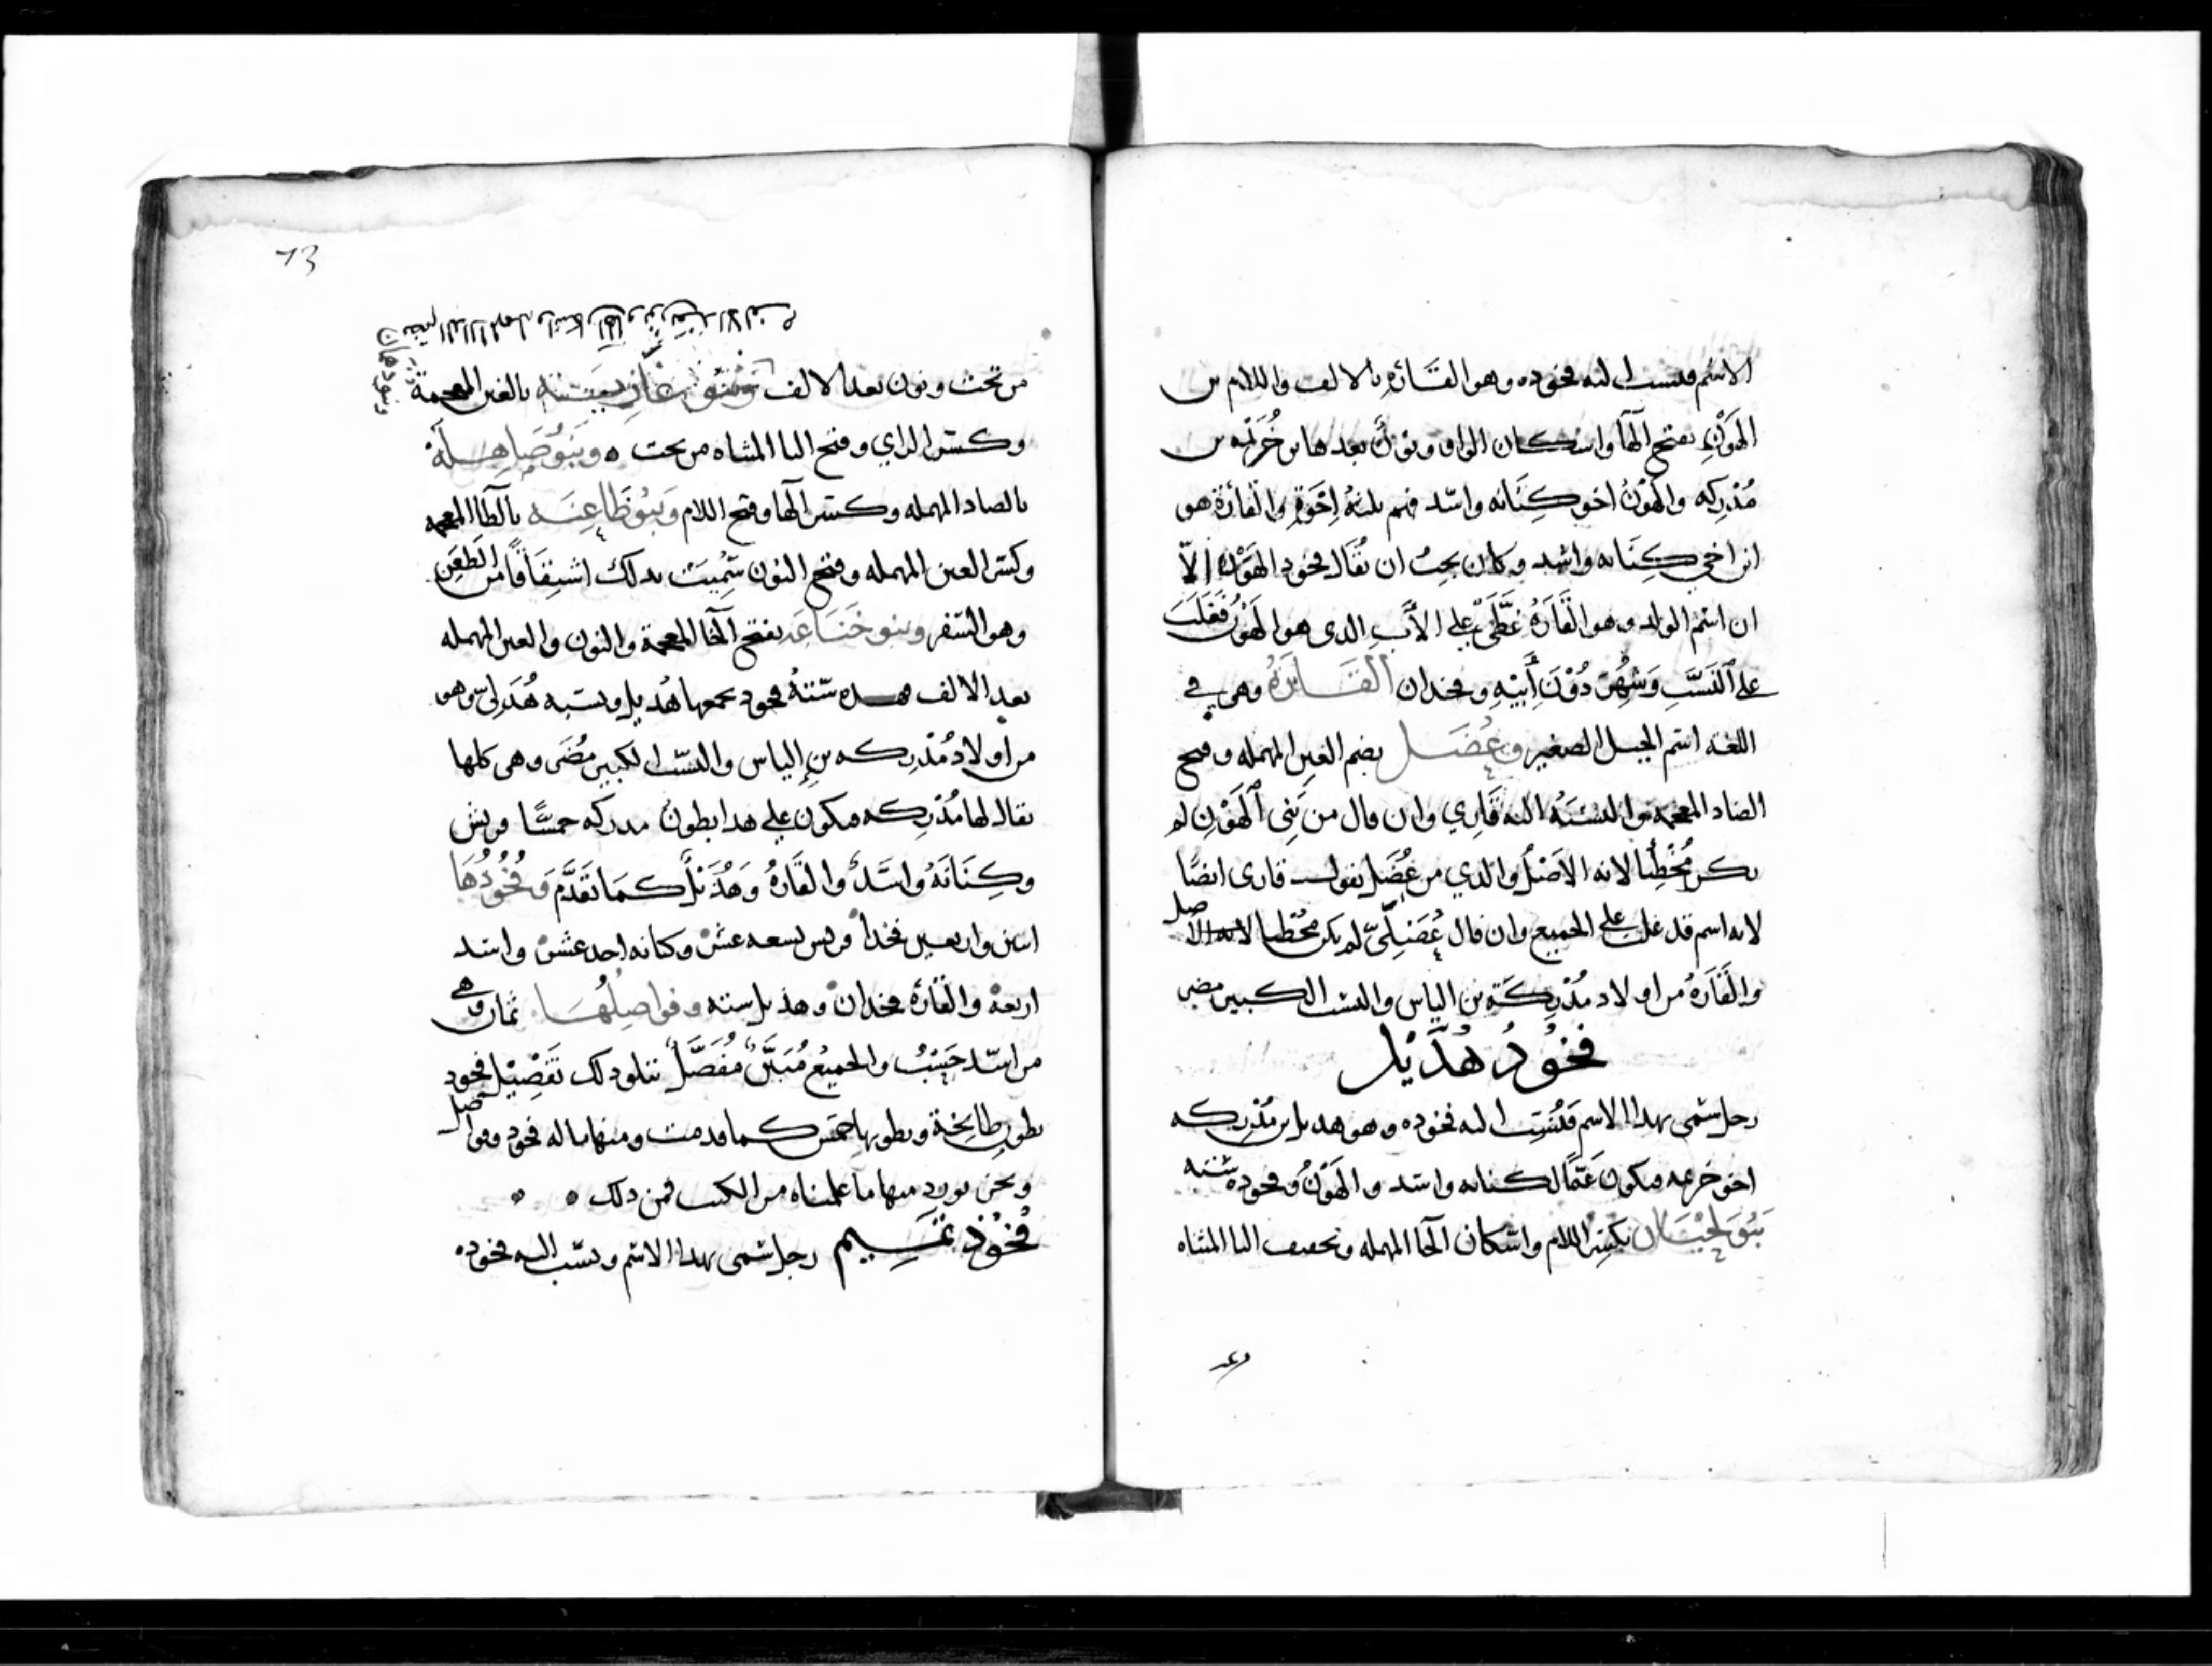 الاسم فنسب اليه فخوده وهو القاره بالالف واللام بن
الهَوْنِ بفتح الها واسكان الواو ونون بعدها بن خُزَيمه بن
مُدْرِكه والهَوْنُ اخو كِنَانه واسد فهم ثلثة اِخْوَةٍ والقارة هو
ابن اخي كِنَانه واسد وكان يجبُ ان يُقال فخود الهَوْن اِلاّ
ان اسم الولد وهو القَارَةُ غطَّى على الأَبِ الذى هو الهَوْن فَغلَبَ
على النَسَبِ وَشُهِرَ دُوْنَ أَبِيْهِ وفخدان القَارَةُ وهى في
اللغه اسم الجبل الصغير وعُضَل بضم العين المهمله وفتح
الضاد المعجمه والنسبَه اليه قَارِي وان قال من بَنِى الهَوْنِ لم
يكن مُخْطِئًا لانه الاَصْلُ والذي من عُضَل يقول قارى ايضًا
لانه اسم قد غلب على الجميع وان قال عُضَلِىّ لم يكن مُخْطيا لانه الاصل
والقَارَةُ من اولاد مُدْرِكَة بن الياس والنسب الكبير مضر
فخُوْدُ هُذَيْل
رجل سمى بهدا الاسم فنُسِبَ اليه فخوده وهو هديل بن مُدْرِكه
اخو خزيمه فيكون عَمًّا لكنانه واسد والهَوْنُ وفخوده ستته
بَنُو لِحْيَان بكسر اللام واسكان الحا المهمله وتخفيف اليا المثناه
وبنو دهمان بضم الدال المهمله واسكان الها ونون بعد الالف
من تحت ونون بعد الالف وَبَنُو غَازِيَته بالغين المعجمة
وكسر الزاي وفتح اليا المثناه من تحت وَبَنُو صَاهِلَة
بالصاد المهمله وكسر الها وفتح اللام وَبَنُو ظَاعِنَه بالظا المعجمه
وكسر العين المهمله وفتح النون سُمِيَتْ بدلك اشتِقَاقًا من الظعن
وهو السفر وبنو خَنَاعَه بفتح الخا المعجمة والنون والعين المهمله
بعد الالف هده ستتة فخود يجمعها هُديل ونسبه هُدَلِى وهو
من اولاد مُدْرِكه بن إلياس والنسب الكبير مُضَر وهى كلها
يقال لها مُدْرِكه فيكون على هدا بطون مدركه خمسًا قريش
وكِنَانَةُ واسَدٌ والقَارَةُ وَهُذَيْلٌ كَمَا تَقَدَّمَ وَفُخُوْدُهَا
اثنين واربعين فخدا قريش تسعه عشر وكنانه احد عشر واسد
اربعة والقارة فخدان وهذيل سته وفواصِلُهَا ثمان وهى
من اسد حَسْبُ والجميعُ مُبَيَّنٌ مُفَصَّلٌ يتلو دلك تَفْصِيْل فخود
بطون طابِخة وبطونها خمس كما قدمت ومنها ما له فخود وفواصل
ونحن نورد منها ما علمناه من الكتب فمن دلك
فُخُوْذ تَمِيم رجل سمى بهدا الاسم ونسب اليه فخوده